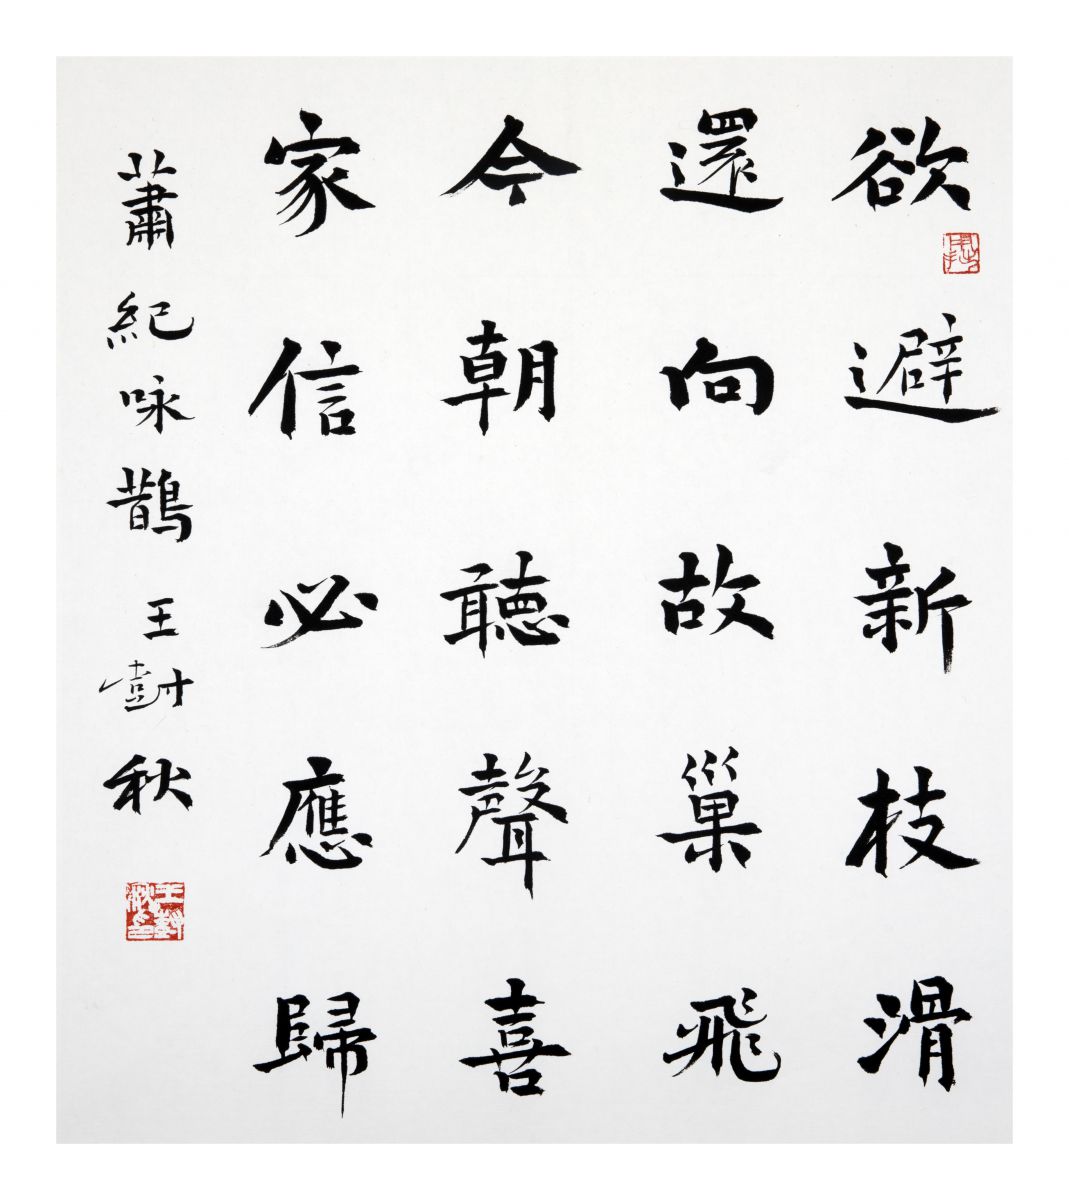 欲避新枝滑
還向故巢飛
今朝聽聲喜
家信必應歸
蕭紀咏鵲 王尌秋
王尌秋印